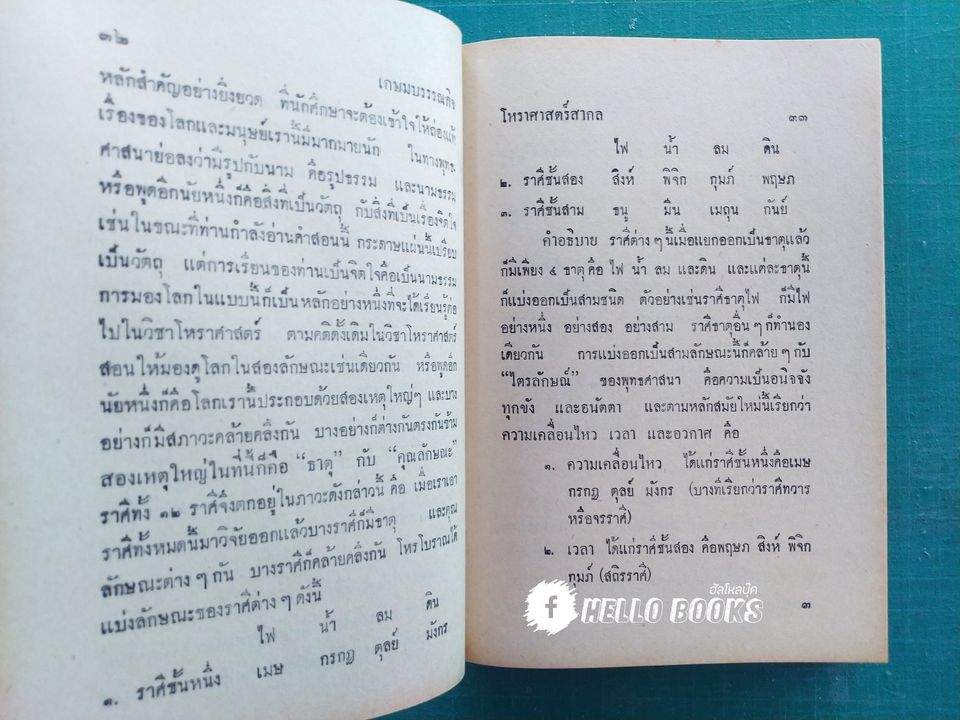 ๓๒
เกษมบรรณกิจ
หลักสำคัญอย่างยิ่งยวด ที่นักศึกษาจะต้องเข้าใจให้ถ่องแท้
เรื่องของโลกและมนุษย์เรานี้มีมากมายนัก ในทางพุทธ-
ศาสนาย่อลงว่ามีรูปกับนาม คือรูปธรรม และนามธรรม
หรือพูดอีกนัยหนึ่งก็คือสิ่งที่เป็นวัตถุ กับสิ่งที่เป็นเรื่องจิตใจ
เช่นในขณะที่ท่านกำลังอ่านคำสอนนี้ กระดาษแผ่นนี้เปรียบ
เป็นวัตถุ แต่การเรียนของท่านเป็นจิตใจคือเป็นนามธรรม
การมองโลกในแบบนี้ก็เป็นหลักอย่างหนึ่งที่จะได้เรียนรู้ต่อ
ไปในวิชาโหราศาสตร์ ตามคติดั้งเดิมในวิชาโหราศาสตร์
สอนให้มองดูโลกในสองลักษณะเช่นเดียวกัน หรือพูดอีก
นัยหนึ่งก็คือโลกเรานี้ประกอบด้วยสองเหตุใหญ่ๆ และบาง
อย่างก็มีสภาวะคล้ายคลึงกัน บางอย่างก็ต่างกันตรงกันข้าม
สองเหตุใหญ่ในที่นี้ก็คือ “ธาตุ” กับ “คุณลักษณะ”
ราศีทั้ง ๑๒ ราศีจึงตกอยู่ในภาวะดังกล่าวนี้ คือ เมื่อเราเอา
ราศีทั้งหมดนี้มาวิจัยออกแล้วบางราศีก็มีธาตุ และคุณ
ลักษณะต่าง ๆ กัน บางราศีก็คล้ายคลึงกัน โหรโบราณได้
แบ่งลักษณะของราศีต่าง ๆ ดังนี้
ไฟ น้ำ ลม ดิน
๑. ราศีชั้นหนึ่ง เมษ กรกฎ ตุลย์ มังกร
โหราศาสตร์สากล ๓๓
ไฟ น้ำ ลม ดิน
๒. ราศีชั้นสอง สิงห์ พิจิก กุมภ์ พฤษภ
๓. ราศีชั้นสาม ธนู มีน เมถุน กันย์
คำอธิบาย ราศีต่าง ๆ นี้เมื่อแยกออกเป็นธาตุแล้ว
ก็มีเพียง ๔ ธาตุ คือ ไฟ น้ำ ลม และดิน และแต่ละธาตุนี้
ก็แบ่งออกเป็นสามชนิด ตัวอย่างเช่นราศีธาตุไฟ ก็มีไฟ
อย่างหนึ่ง อย่างสอง อย่างสาม ราศีธาตุอื่น ๆ ก็ทำนอง
เดียวกัน การแบ่งออกเป็นสามลักษณะนี้ก็คล้าย ๆ กับ
“ไตรลักษณ์” ของพุทธศาสนา คือความเป็นอนิจจัง
ทุกขัง และอนัตตา และตามหลักสมัยใหม่นี้เรียกว่า
ความเคลื่อนไหว เวลา และอวกาศ คือ
๑. ความเคลื่อนไหว ได้แก่ราศีชั้นหนึ่งคือเมษ
กรกฎ ตุลย์ มังกร (บางที่เรียกว่าราศีทวาร
หรือจรราศี)
๒. เวลา ได้แก่ราศีชั้นสอง คือพฤษภ สิงห์ พิจิก
กุมภ์ (สถิรราศี)
ฮัลโหลบุ๊ค
f HELLO BOOKS
๓